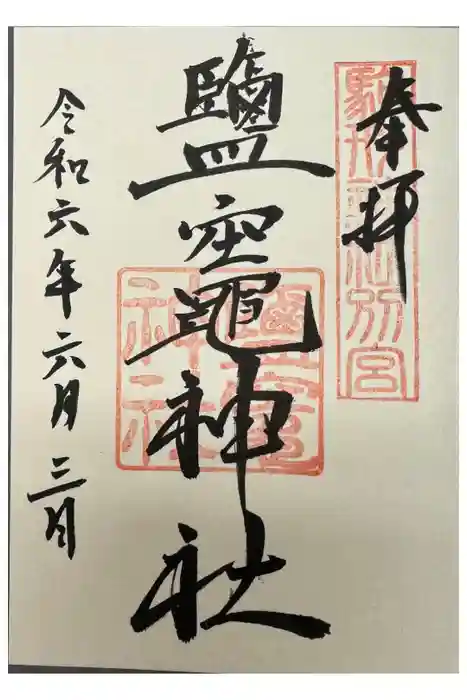 奉拝
駒形神社別宮
鹽竈神社
鹽竈神社
令和六年六月三日